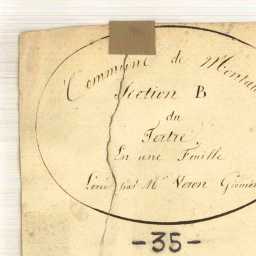 Commune de Monta
Section B
du
Tertre
En une Feuille
Levée par Mr Veron Géomè
-35-